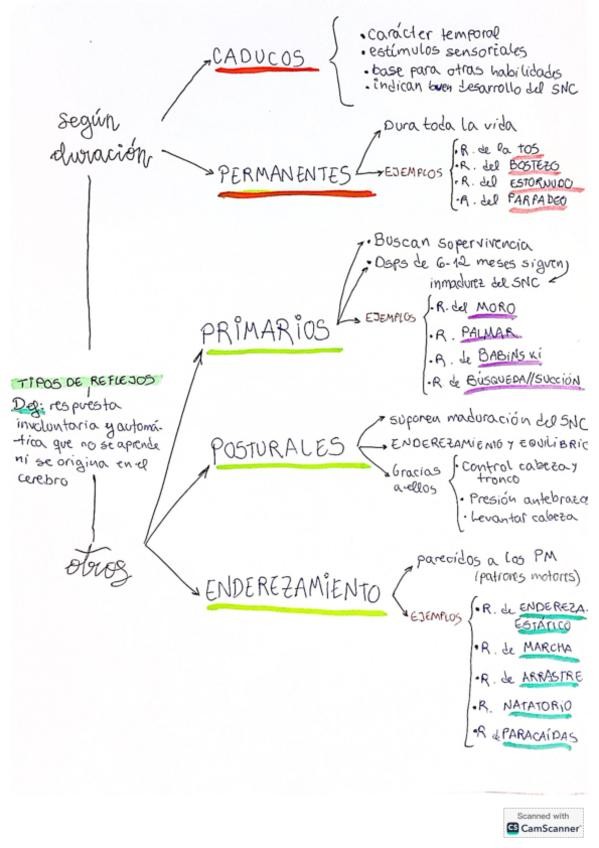 CADUCOS
• carácter temporal
• estímulos sensoriales
• base para otras habilidades
• indican buen desarrollo del SNC
según
duración
PERMANENTES
Dura toda la vida
EJEMPLOS
• R. de la TOS
• R. del BOSTEZO
• R. del ESTORNUDO
• R. del PARPADEO
TIPOS DE REFLEJOS
Def: respuesta
involuntaria y automá-
tica que no se aprende
ni se origina en el
cerebro
otros
PRIMARIOS
• Buscan supervivencia
• Dsps de 6-12 meses siguen
inmadurez del SNC
EJEMPLOS
• R. del MORO
• R. PALMAR
• R. de BABINSKI
• R de BÚSQUEDA//SUCCIÓN
POSTURALES
suponen maduración del SNC
ENDEREZAMIENTO Y EQUILIBRIC
Gracias
a ellos
• Control cabeza y
tronco
• Presión antebrazo
• Levantar cabeza
ENDEREZAMIENTO
parecidos a los PM
(patrones motores)
EJEMPLOS
• R. de ENDEREZA.
ESTÁTICO
• R. de MARCHA
• R. de ARRASTRE
• R. NATATORIO
• R de PARACAÍDAS
Scanned with
CS CamScanner